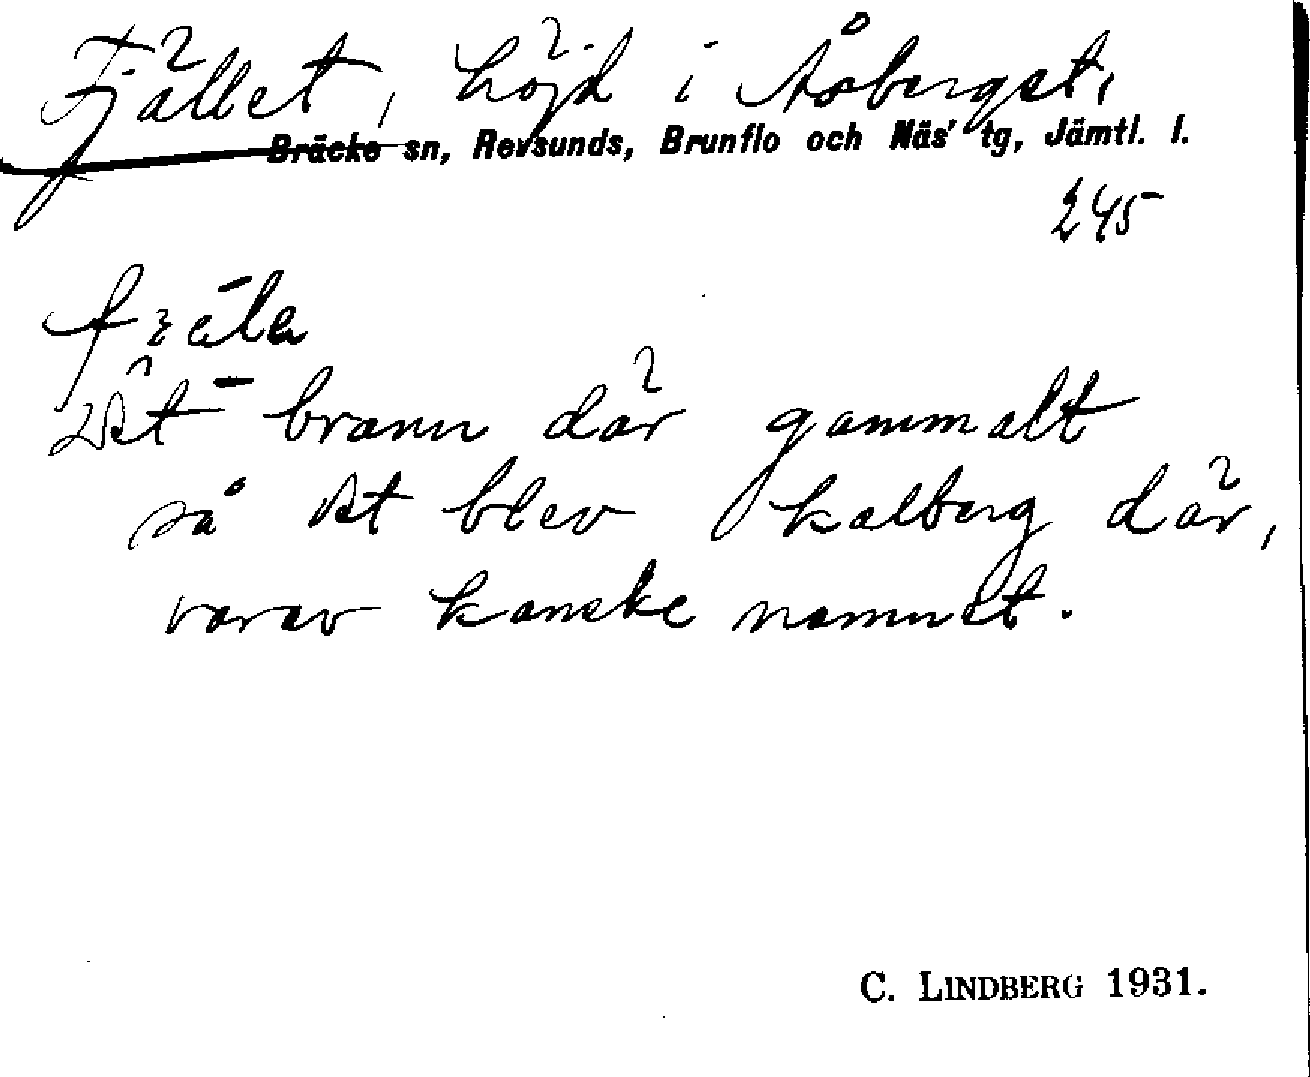 Fjället, höjd i Åsberget,
Bräcke sn, Revsunds, Brunflo och Näs' tg, Jämtl. l.
245
Det brann där gammalt
så det blev kalberg där,
varav kanske namnet.
C. LINDBERG 1931.